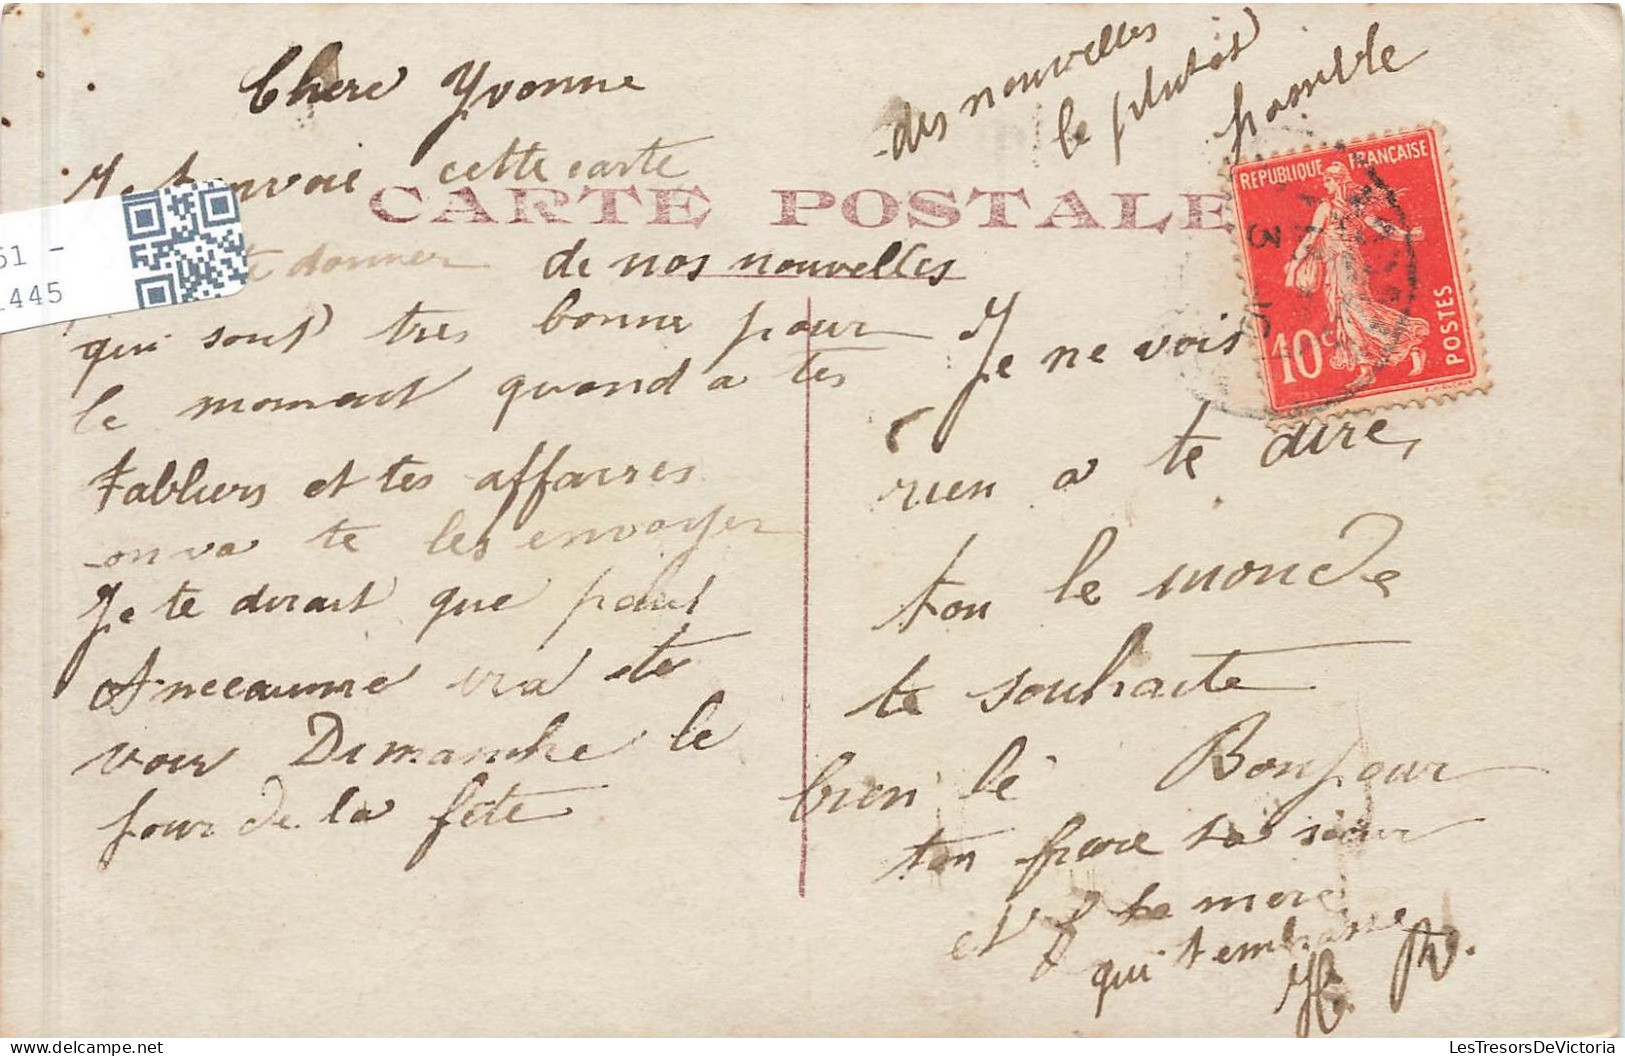 Chere Yvonne
Je t'envoie cette carte
CARTE POSTALE
te donner de nos nouvelles
qui sont tres bonne pour
le moment quand a tes
tabliers et tes affaires
on va te les envoyer
Je te dirait que
ira te
voir Dimanche le
jour de la fete
Je ne vois
rien a te dire,
tou le monde
te souhaite
bien le Bonjour
ton frere ta sœur
et ta mere
qui t embrasse
des nouvelles
le plutot
possible
REPUBLIQUE FRANÇAISE
10c
POSTES
3
51 -
1445
LesTresorsDeVictoria